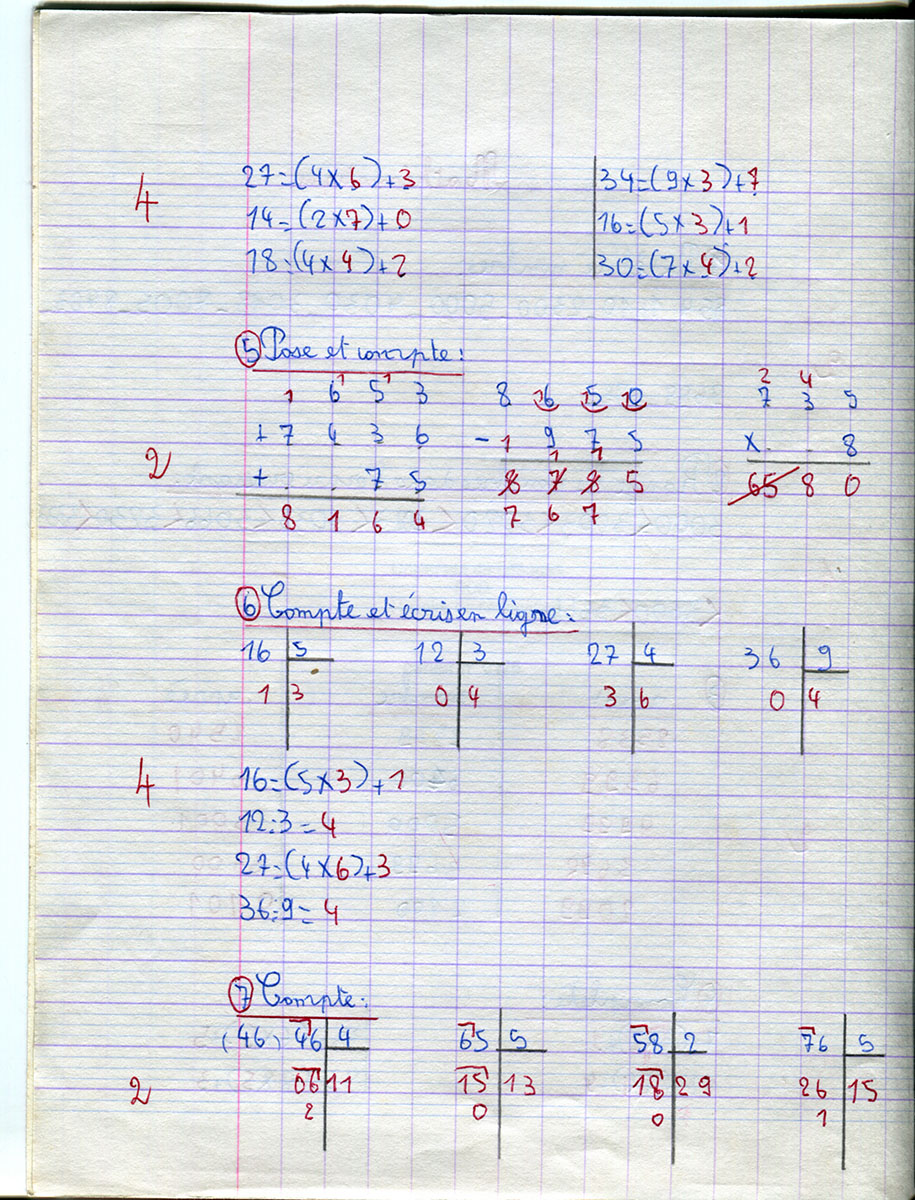 27=(4x6)+3 34=(9x3)+7
4
14=(2x7)+0 16=(5x3)+1
18=(4x4)+2 30=(7x4)+2
⑤ Pose et compte:
1 1 2 4
1 6 5 3 8 16 15 10 7 3 5
+7 4 3 6 -1 9 7 5 x . . 8
1 1
2
+ . . 7 5 8 7 8 5 65 8 0
8 1 6 4 7 6 7
⑥ Compte et écris en ligne:
16 5 12 3 27 4 36 9
1 3 0 4 3 6 0 4
4
16=(5x3)+1
12:3=4
27=(4x6)+3
36:9=4
⑦ Compte:
(46) 46 4 65 5 58 2 76 5
2
06 11 15 13 18 29 26 15
2 0 0 1